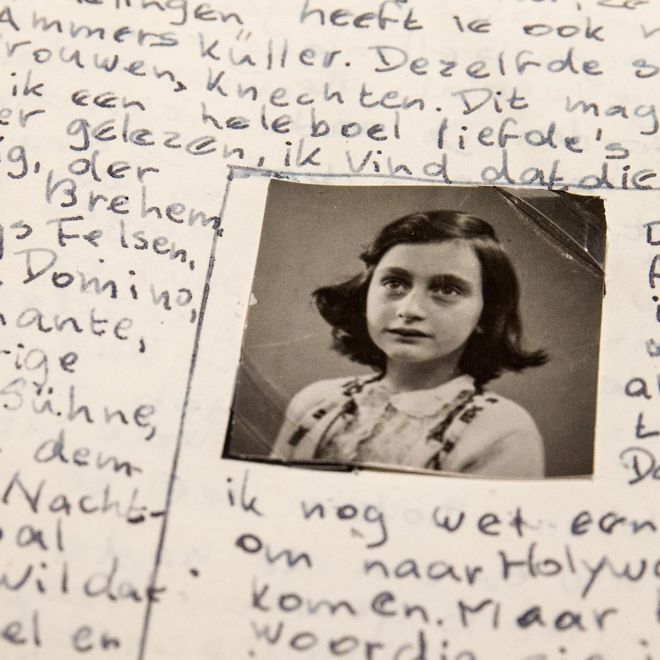 heeft ie ook
Ammers Küller. Dezelfde
rouwen, Knechten. Dit mag
ik een heleboel liefde's
er gelezen, ik vind dat die
der
Brehem
Felsen,
Domino,
ante,
rige
Sühne,
dem
Nacht-
al
el en
ik nog wet een
om naar Holywo
komen. Maar
woordig